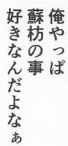 俺やっぱ
蘇枋の事
好きなんだよなぁ